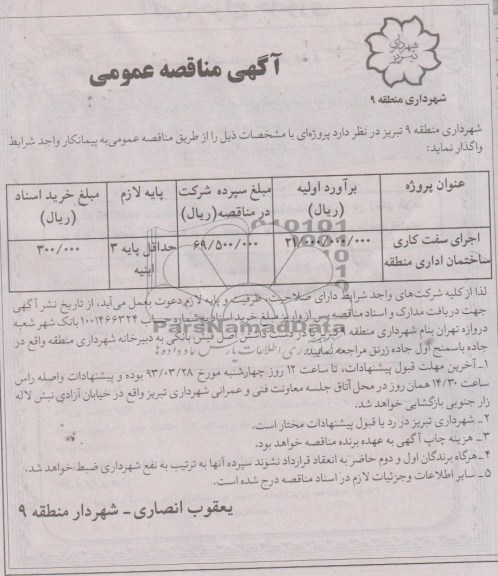 شهرداری تبریز
شهرداری منطقه ۹
آگهی مناقصه عمومی
شهرداری منطقه ۹ تبریز در نظر دارد پروژه‌ای با مشخصات ذیل را از طریق مناقصه عمومی به پیمانکار واجد شرایط
واگذار نماید:
عنوان پروژه
برآورد اولیه (ریال)
مبلغ سپرده شرکت در مناقصه(ریال)
پایه لازم
مبلغ خرید اسناد (ریال)
اجرای سفت کاری ساختمان اداری منطقه
۲۷/۰۰۰/۰۰۰/۰۰۰
۶۹/۵۰۰/۰۰۰
حداقل پایه ۳ ابنیه
۳۰۰/۰۰۰
لذا از کلیه شرکت‌های واجد شرایط دارای صلاحیت، ظرفیت و پایه لازم دعوت بعمل می‌آید، از تاریخ نشر آگهی
جهت دریافت مدارک و اسناد مناقصه پس از واریز مبلغ خرید اسناد به شماره حساب ۱۰۰۱۴۶۶۳۲۴ بانک شهر شعبه
دروازه تهران بنام شهرداری منطقه ۹ تبریز و در دست داشتن اصل فیش بانکی به دبیرخانه شهرداری منطقه واقع در
جاده باسمنج اول جاده زرنق مراجعه نمایند.
ParsNamadData
۱ـ آخرین مهلت قبول پیشنهادات، تا ساعت ۱۲ روز چهارشنبه مورخ ۹۳/۰۳/۲۸ بوده و پیشنهادات واصله راس
ساعت ۱۴/۳۰ همان روز در محل آتاق جلسه معاونت فنی و عمرانی شهرداری تبریز واقع در خیابان آزادی نبش لاله
زار جنوبی بازگشایی خواهد شد.
۲ـ شهرداری تبریز در رد یا قبول پیشنهادات مختار است.
۳ـ هزینه چاپ آگهی به عهده برنده مناقصه خواهد بود.
۴ـ هرگاه برندگان اول و دوم حاضر به انعقاد قرارداد نشوند سپرده آنها به ترتیب به نفع شهرداری ضبط خواهد شد.
۵ـ سایر اطلاعات وجزئیات لازم در اسناد مناقصه درج شده است.
یعقوب انصاری ـ شهردار منطقه ۹